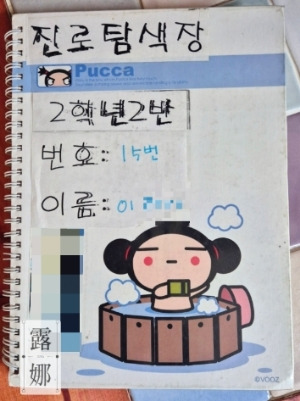 진로탐색장
Pucca
2학년2반
번호: 15번
이름: 이
露
娜
©VOOZ